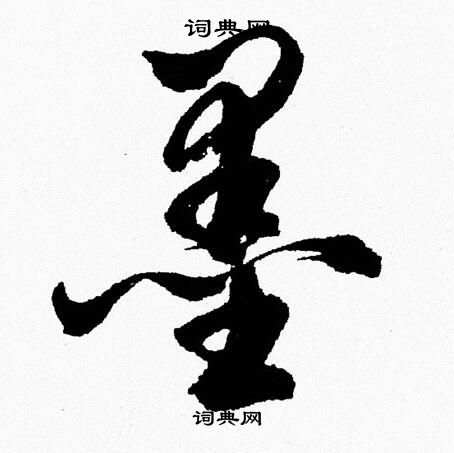 词典网
墨
词典网